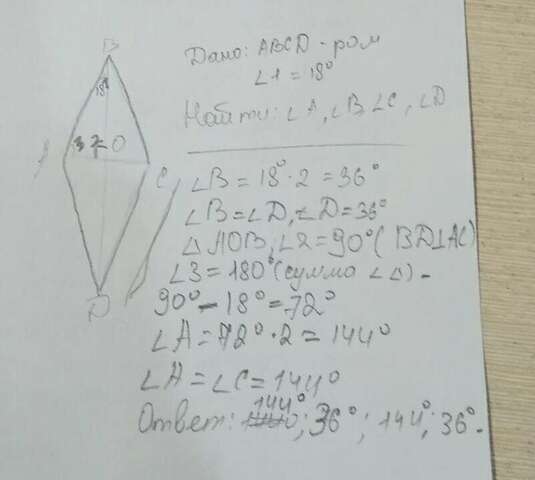 B
18°
3 2 O
C
D
Дано: ABCD - ром
∠1 = 18°
Найти: ∠A, ∠B ∠C, ∠D
∠B = 18° · 2 = 36°
∠B = ∠D, ∠D = 36°
△ AOB, ∠2 = 90° (BD⊥AC)
∠3 = 180° (сумма ∠△) -
90° - 18° = 72°
∠A = 72° · 2 = 144°
∠A = ∠C = 144°
Ответ: 144°; 36°; 144°; 36°.